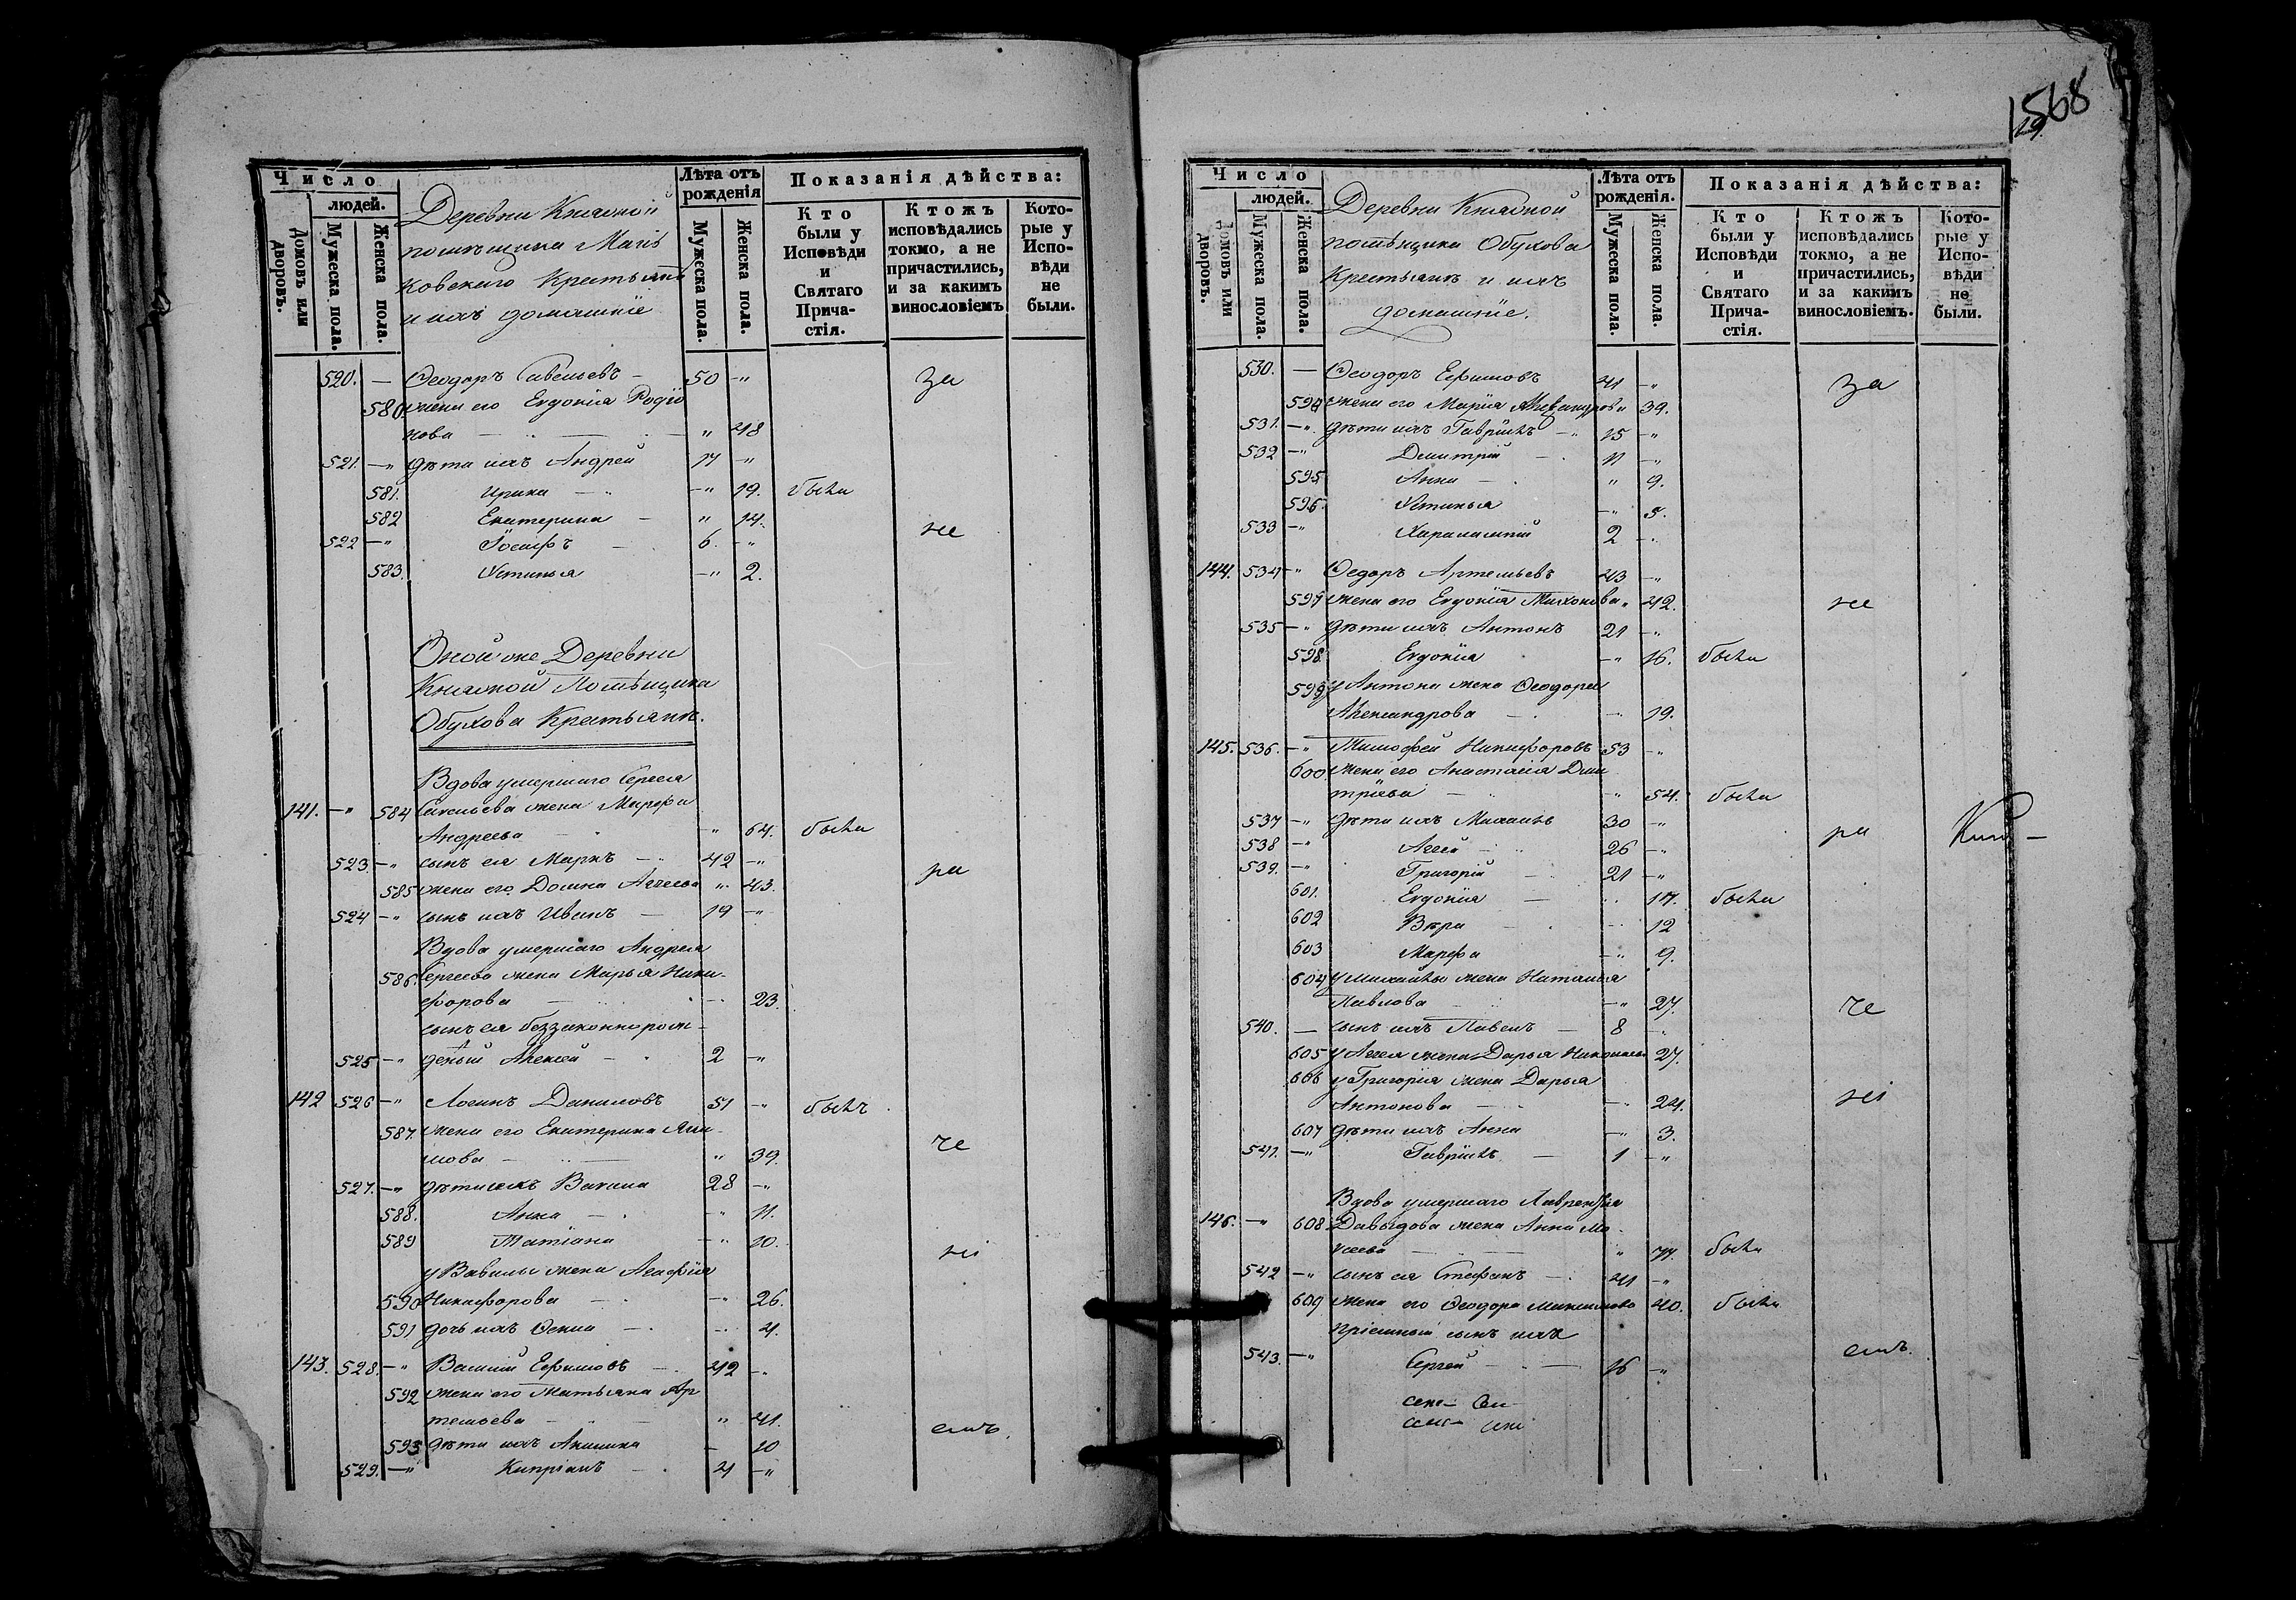 1568
29.
Число
людей.
Домовъ или дворовъ.
Мужеска пола.
Женска пола.
Деревни Княжной
помѣщика Мань
ковскаго Крестьянъ
и ихъ домашніе
Лѣта отъ рожденія
Мужеска пола.
Женска пола.
Показанія дѣйства:
Кто были у Исповѣди и Святаго Прича- стія.
Ктожъ исповѣдались токмо, а не причастились, и за какимъ винословіемъ
Кото- рые у Испо- вѣди не были.
520. — Ѳеодоръ Савельевъ — 50 —" за
580 жена его Евдокія Родіо
нова — " 48
521. —" дѣти ихъ Андрей 17 —"
581. Ирина — —" 19. была
582 Екатерина — " 14. не
522 —" Іосифъ 6. —"
583. Устинья —" 2.
Оной же Деревни
Княжной Помѣщика
Обухова Крестьянъ.
Вдова умершаго Сергея
141. —" 584 Савельева жена Марфа
Андреева " 64. была
523. —" сынъ ея Маркъ — 42 —" ра
585 жена его Домна Аггеева " 43.
524 —" сынъ ихъ Иванъ — 19 —"
Вдова умершаго Андрея
586. Сергеева жена Марья Ники-
форова — 23.
сынъ ея беззаконнорож-
525 —" деный Алексей — 2 —"
142 526 —" Логинъ Даниловъ 51 —" былъ
587. жена его Екатерина Аки-
мова — " 39. че
527. —" дѣти ихъ Вавила 28 —"
588. Анна — —" 11.
589 Татіана —" 10. ні
у Вавилы жена Агафія
590 Никифорова — —" 26.
591 дочь ихъ Ѳекла — 4.
143. 528. —" Василій Ефимовъ — 42 —"
592 жена его Татьяна Ар
темьева — " 41. емъ.
593 дѣти ихъ Акилина — 10
529. —" Кипріанъ 4 —"
Число
людей.
Домовъ или дворовъ.
Мужеска пола.
Женска пола.
Деревни Княжной
помѣщика Обухова
Крестьянъ и ихъ
домашніе.
Лѣта отъ рожденія.
Мужеска пола.
Женска пола.
Показанія дѣйства:
Кто были у Исповѣди и Святаго Прича- стія.
Ктожъ исповѣдались токмо, а не причастились, и за какимъ винословіемъ.
Кото- рые у Испо- вѣди не были.
530. — Ѳеодоръ Ефимовъ 41 —" за
594 жена его Марія Александрова 39.
531. —" дѣти ихъ Гавріилъ — 15 —"
532 —" Димитрій — 11 —"
595 Анна — " 9.
596. Устинья —" 5.
533 —" Харалампій 2 —"
144. 534 —" Ѳедоръ Артемьевъ 43 —"
597 жена его Евдокія Тихонова " 42. не
535 —" дѣти ихъ Антонъ 21 —"
598. Евдокія —" 16. была
599 у Антона жена Ѳеодора
Александрова — —" 19.
145. 536. —" Тимофей Никифоровъ 53 —"
600 жена его Анастасія Дми
тріева — " 54. была
537 —" дѣти ихъ Михаилъ 30 —" ра
538 —" Аггей — 26 —"
539. —" Григорій — 21 —"
601. Евдокія — 17. была
602 Вѣра — 12
603 Марфа —" 9.
604 у Михайлы жена Наталья
Павлова —" 27. че
540. — сынъ ихъ Павелъ — 8 —"
605 у Аггея жена Дарья Николаева 27.
606 у Григорія жена Дарья
Антонова — —" 24. ні
607 дѣти ихъ Анна —" 3.
541. —" Гавріилъ — 1 —"
Вдова умершаго Лаврентія
146. —" 608 Давыдова жена Анна Мо
исеева — " 77. была
542 —" сынъ ея Стефанъ — 41 —"
609 жена его Ѳеодора Максимова 40. была
пріемный сынъ ихъ
543. —" Сергей — 16 —" емъ.